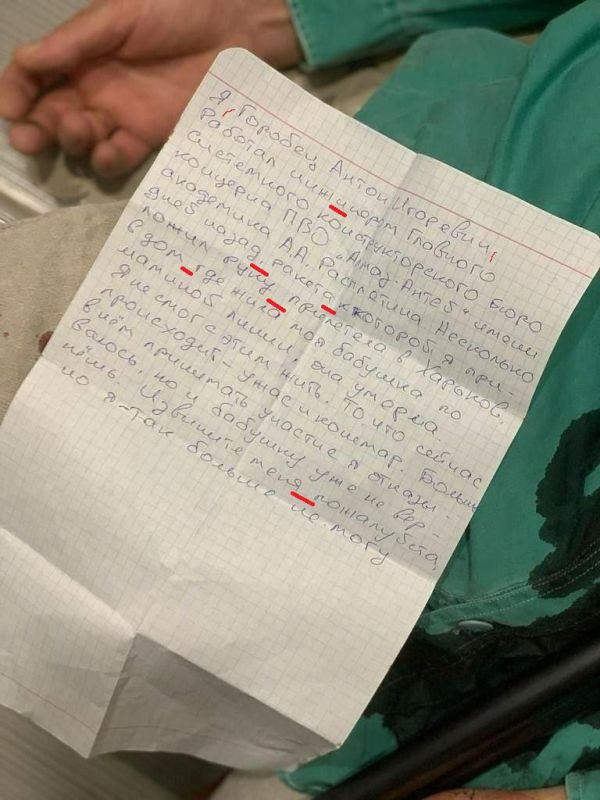 Я Горобец Антон Игоревич,
работал инжинером Главного
системного конструкторского бюро
концерна ПВО «Алмаз-Антей» имени
академика А.А. Расплетина. Несколько
дней назад, ракета к которой я при-
ложил руку прилетела в Харьков,
в дом, где жила моя бабушка по
маминой линии, она умерла.
Я не смог с этим жить. То, что сейчас
происходит – ужас и кошмар. Больше
в нём принимать участие я отказы-
ваюсь, но и бабушку уже не вер-
нёшь. Извините меня пожалуйста,
но я – так больше не могу